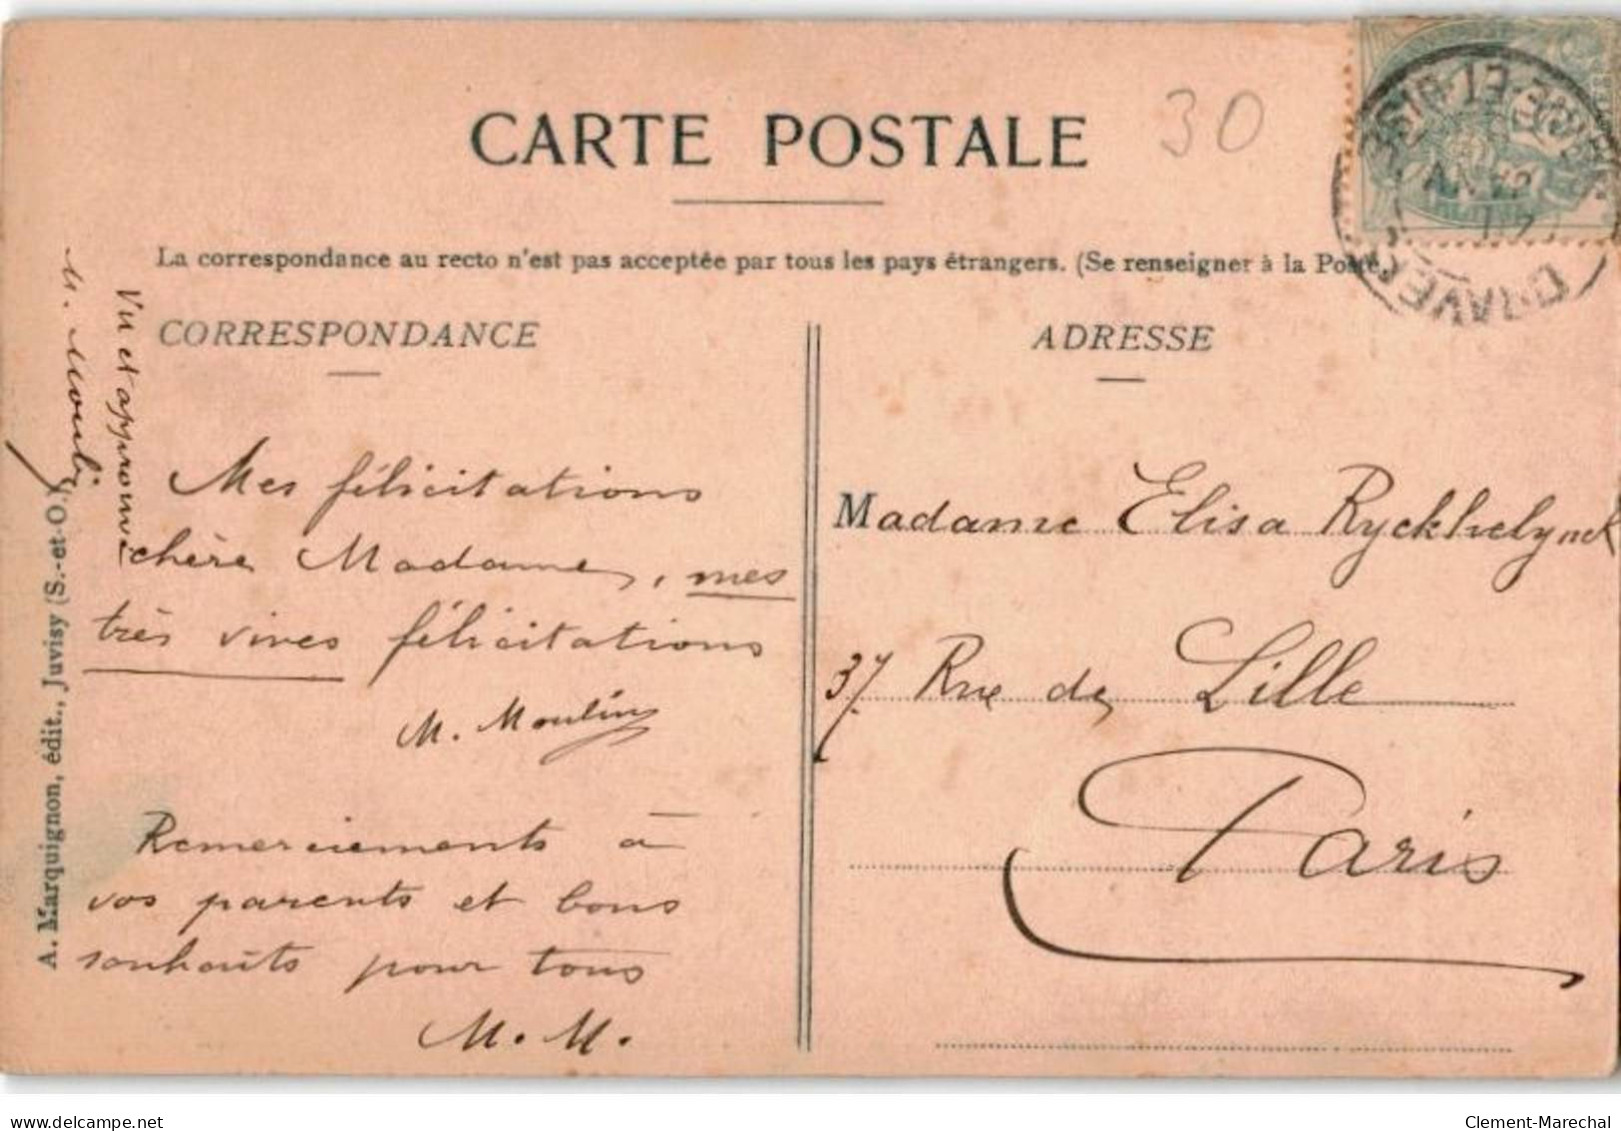 CARTE POSTALE
30
La correspondance au recto n'est pas acceptée par tous les pays étrangers. (Se renseigner à la Poste.)
CORRESPONDANCE
Mes félicitations
chère Madame, mes
très vives félicitations
M. Moulin
Remerciements à
vos parents et bons
souhaits pour tous
M. M.
Vu et approuvé
M. Moulin
A. Marquignon, édit., Juvisy (S.-et-O.)
ADRESSE
Madame Elisa Ryckhelynck
37 Rue de Lille
Paris
DRAVEIL
SEINE-ET-OISE
delcampe.net
Clement-Marechal